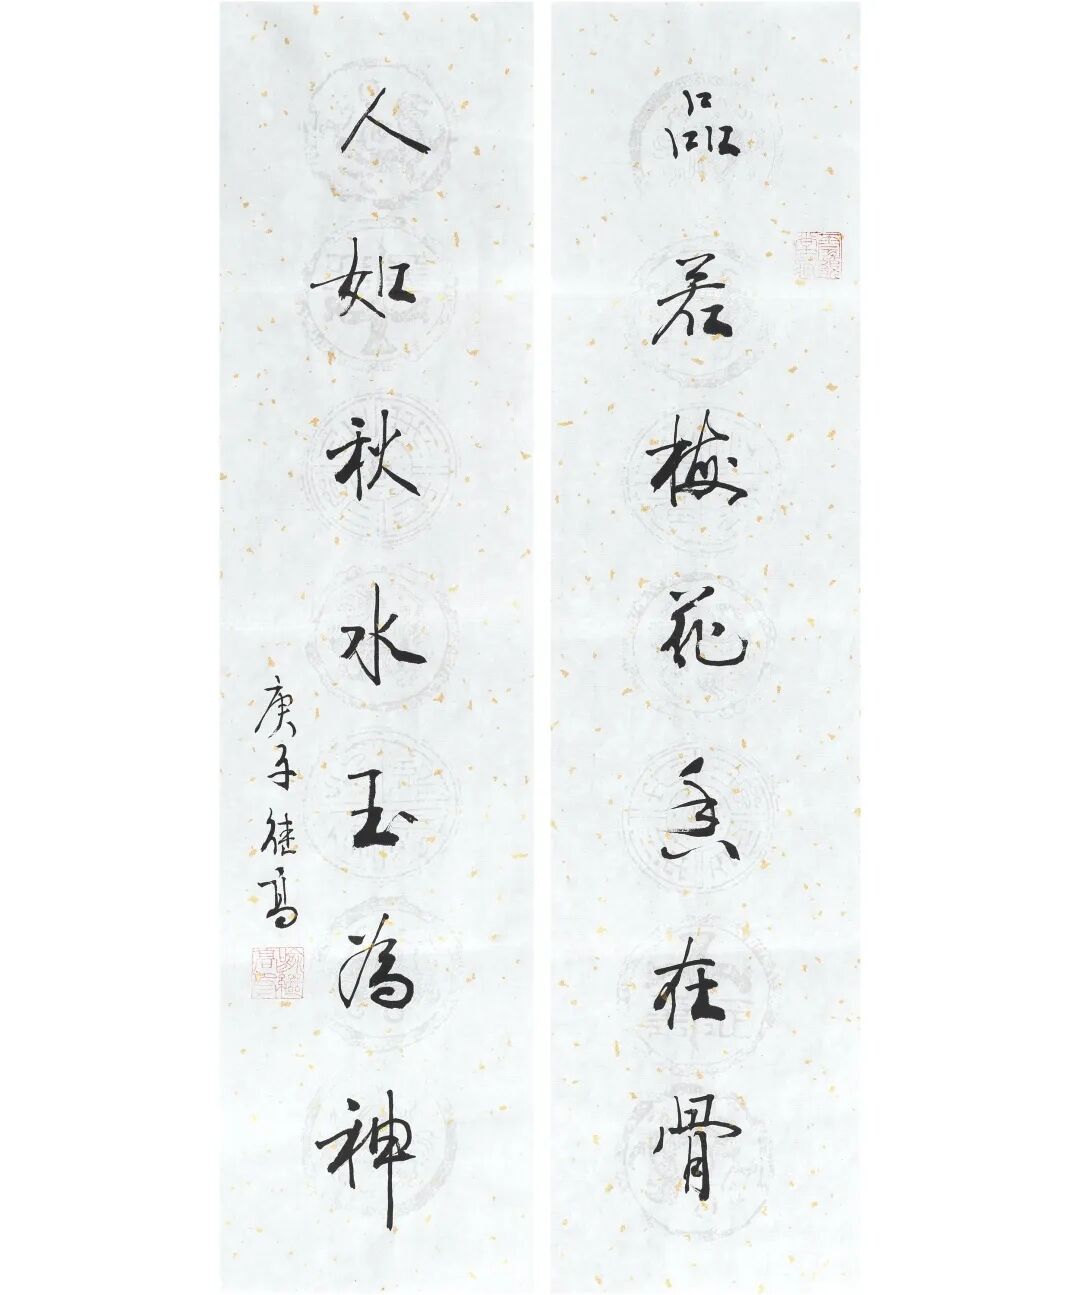 品若梅花香在骨
人如秋水玉為神
庚子継高